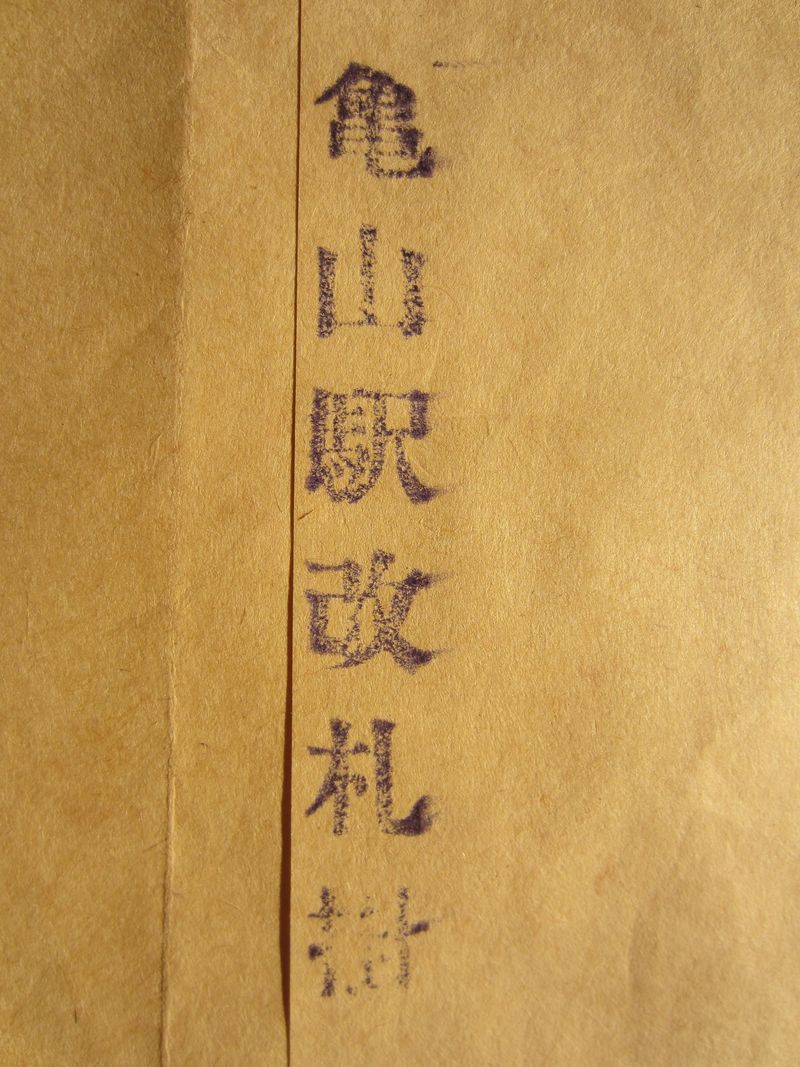 亀山駅改札掛